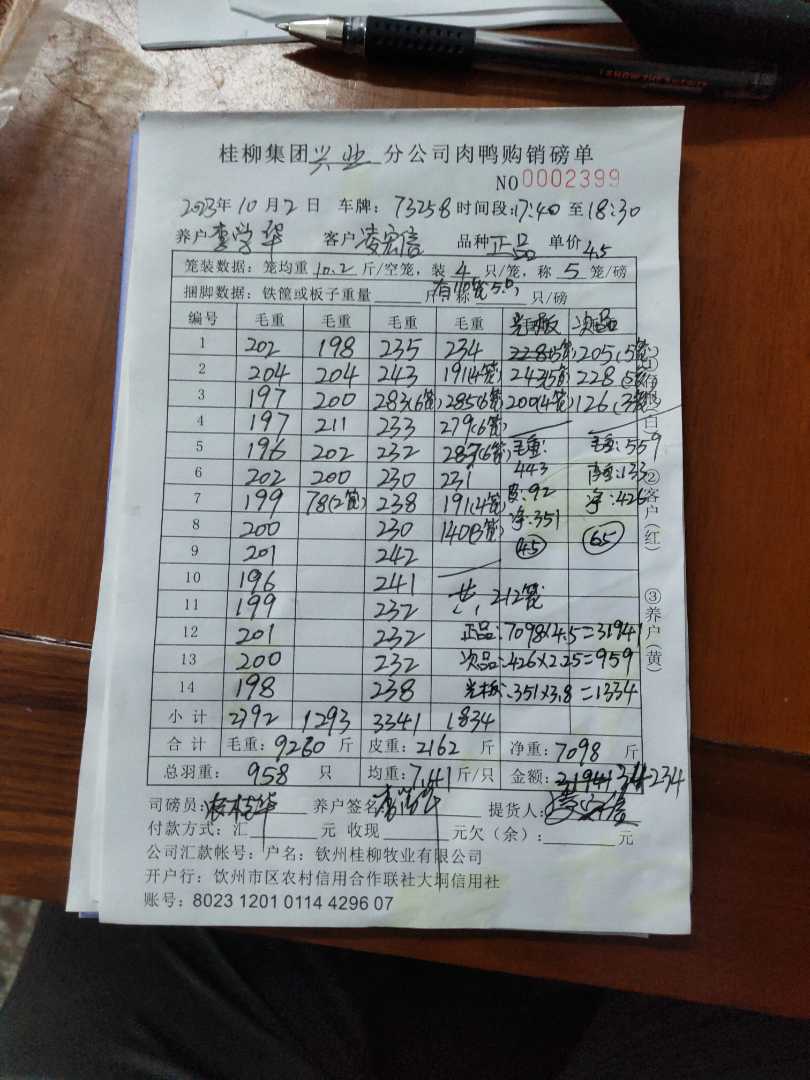 桂柳集团兴业分公司肉鸭购销磅单
NO0002399
2023年10月2日 车牌：73258 时间段：17:40至18:30
养户李学华 客户凌宏信 品种正品 单价4.5
笼装数据：笼均重10.2斤/空笼，装4只/笼，称5笼/磅
捆脚数据：铁筐或板子重量 斤 称 只/磅
编号 毛重 毛重 毛重 毛重 光板 次品
1 202 198 235 234 228(5笼) 205(5笼)
2 204 204 243 191(4笼) 243(5笼) 228(5笼)
3 197 200 283(6笼) 285(6笼) 200(4笼) 126(3笼)
4 197 211 233 279(6笼)
5 196 202 232 287(6笼) 毛重: 毛重:559
6 202 200 230 231 443 皮重:133
7 199 78(2笼) 238 191(4笼) 皮:92 净:426
8 200 230 140(3笼) 净:351
9 201 242 45 65
10 196 241
11 199 232 共:212笼
12 201 232 正品:7098×4.5=31941
13 200 232 次品:426×2.25=959
14 198 238 光板:351×3.8=1334
小计 2792 1293 3341 1834
合计 毛重：9260斤 皮重：2162斤 净重：7098斤
总羽重：958只 均重：7.41斤/只 金额：31941 34234
司磅员: 养户签名: 提货人：
付款方式：汇 元 收现 元欠（余）： 元
公司汇款帐号：户名：钦州桂柳牧业有限公司
开户行：钦州市区农村信用合作联社大垌信用社
账号：8023 1201 0114 4296 07
②客户(红)
③养户(黄)